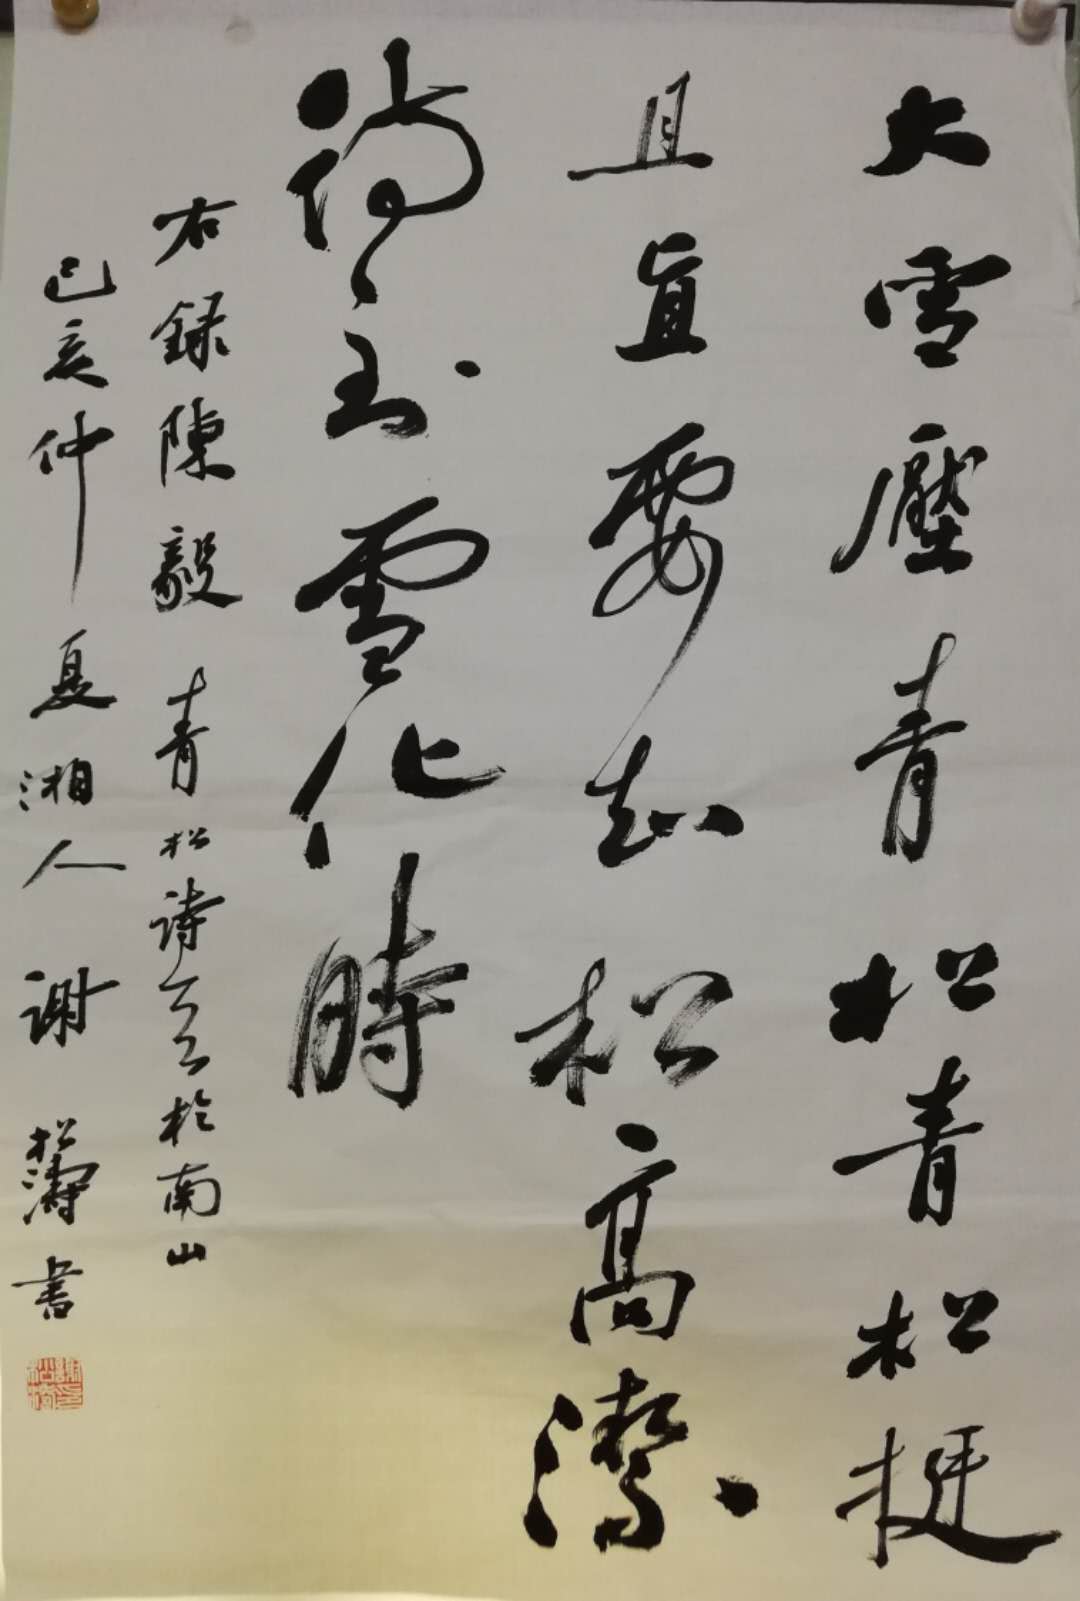 大雪壓青松青松挺
且直要知松高潔
待到雪化時
右録陳毅青松詩於南山
己亥仲夏湘人谢松濤書